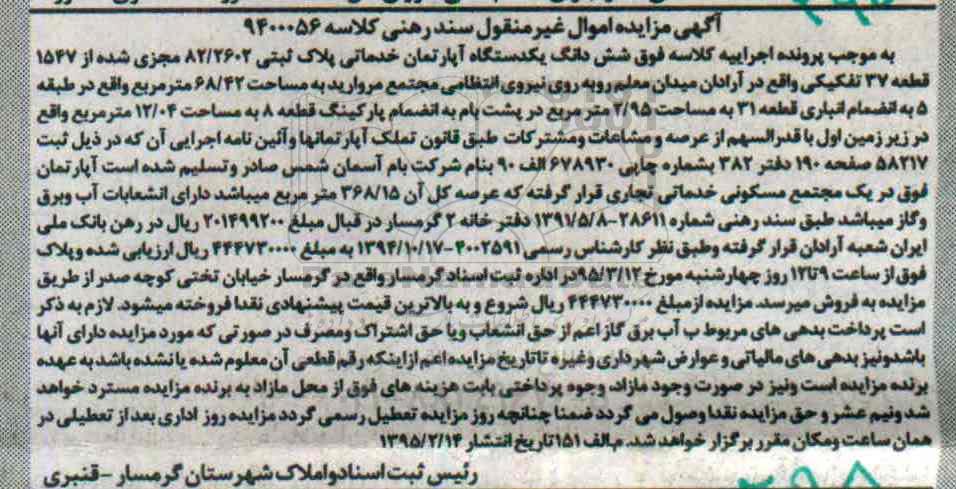 آگهی مزایده اموال غیر منقول سند رهنی کلاسه ۹۴۰۰۰۵۶
به موجب پرونده اجراییه کلاسه فوق شش دانگ یکدستگاه آپارتمان خدماتی پلاک ثبتی ۸۲/۲۶۰۲ مجزی شده از ۱۵۴۷
قطعه ۳۷ تفکیکی واقع در آرادان میدان معلم روبه روی نیروی انتظامی مجتمع مروارید به مساحت ۶۸/۴۲ متر مربع واقع در طبقه
۵ به انضمام انباری قطعه ۳۱ به مساحت ۲/۹۵ متر مربع در پشت بام به انضمام پارکینگ قطعه ۸ به مساحت ۱۲/۰۴ مترمربع واقع
در زیر زمین اول با قدرالسهم از عرصه و مشاعات ومشترکات طبق قانون تملک آپارتمانها وآئین نامه اجرایی آن که در ذیل ثبت
۵۸۲۱۷ صفحه ۱۹۰ دفتر ۳۸۲ بشماره چاپی ۶۷۸۹۳۰ الف ۹۰ بنام شرکت بام آسمان شمس صادر وتسلیم شده است آپارتمان
فوق در یک مجتمع مسکونی خدماتی تجاری قرار گرفته که عرصه کل آن ۳۶۸/۱۵ متر مربع میباشد دارای انشعابات آب وبرق
وگاز میباشد طبق سند رهنی شماره ۲۸۶۱۱-۱۳۹۱/۵/۸ دفتر خانه ۲ گرمسار در قبال مبلغ ۲۰۱۴۹۹۲۰۰ ریال در رهن بانک ملی
ایران شعبه آرادان قرار گرفته وطبق نظر کارشناس رسمی ۴۰۰۲۵۹۱-۱۳۹۴/۱۰/۱۷ به مبلغ ۴۴۴۷۳۰۰۰۰ ریال ارزیابی شده و پلاک
فوق از ساعت ۹تا۱۲ روز چهارشنبه مورخ ۹۵/۳/۱۲در اداره ثبت اسناد گرمسار واقع در گرمسار خیابان تختی کوچه صدر از طریق
مزایده به فروش میرسد. مزایده از مبلغ ۴۴۴۷۳۰۰۰۰ ریال شروع و به بالاترین قیمت پیشنهادی نقدا فروخته میشود. لازم به ذکر
است پرداخت بدهی های مربوط ب آب برق گاز اعم از حق انشعاب ویا حق اشتراک ومصرف در صورتی که مورد مزایده دارای آنها
باشدونیز بدهی های مالیاتی و عوارض شهرداری وغیره تاتاریخ مزایده اعم ازاینکه رقم قطعی آن معلوم شده یا نشده باشد به عهده
برنده مزایده است ونیز در صورت وجود مازاد، وجوه پرداختی بابت هزینه های فوق از محل مازاد به برنده مزایده مسترد خواهد
شد ونیم عشر و حق مزایده نقدا وصول می گردد ضمنا چنانچه روز مزایده تعطیل رسمی گردد مزایده روز اداری بعد از تعطیلی در
همان ساعت ومکان مقرر برگزار خواهد شد. م.الف ۱۵۱ تاریخ انتشار ۱۳۹۵/۲/۱۴
رئیس ثبت اسناد واملاک شهرستان گرمسار -قنبری